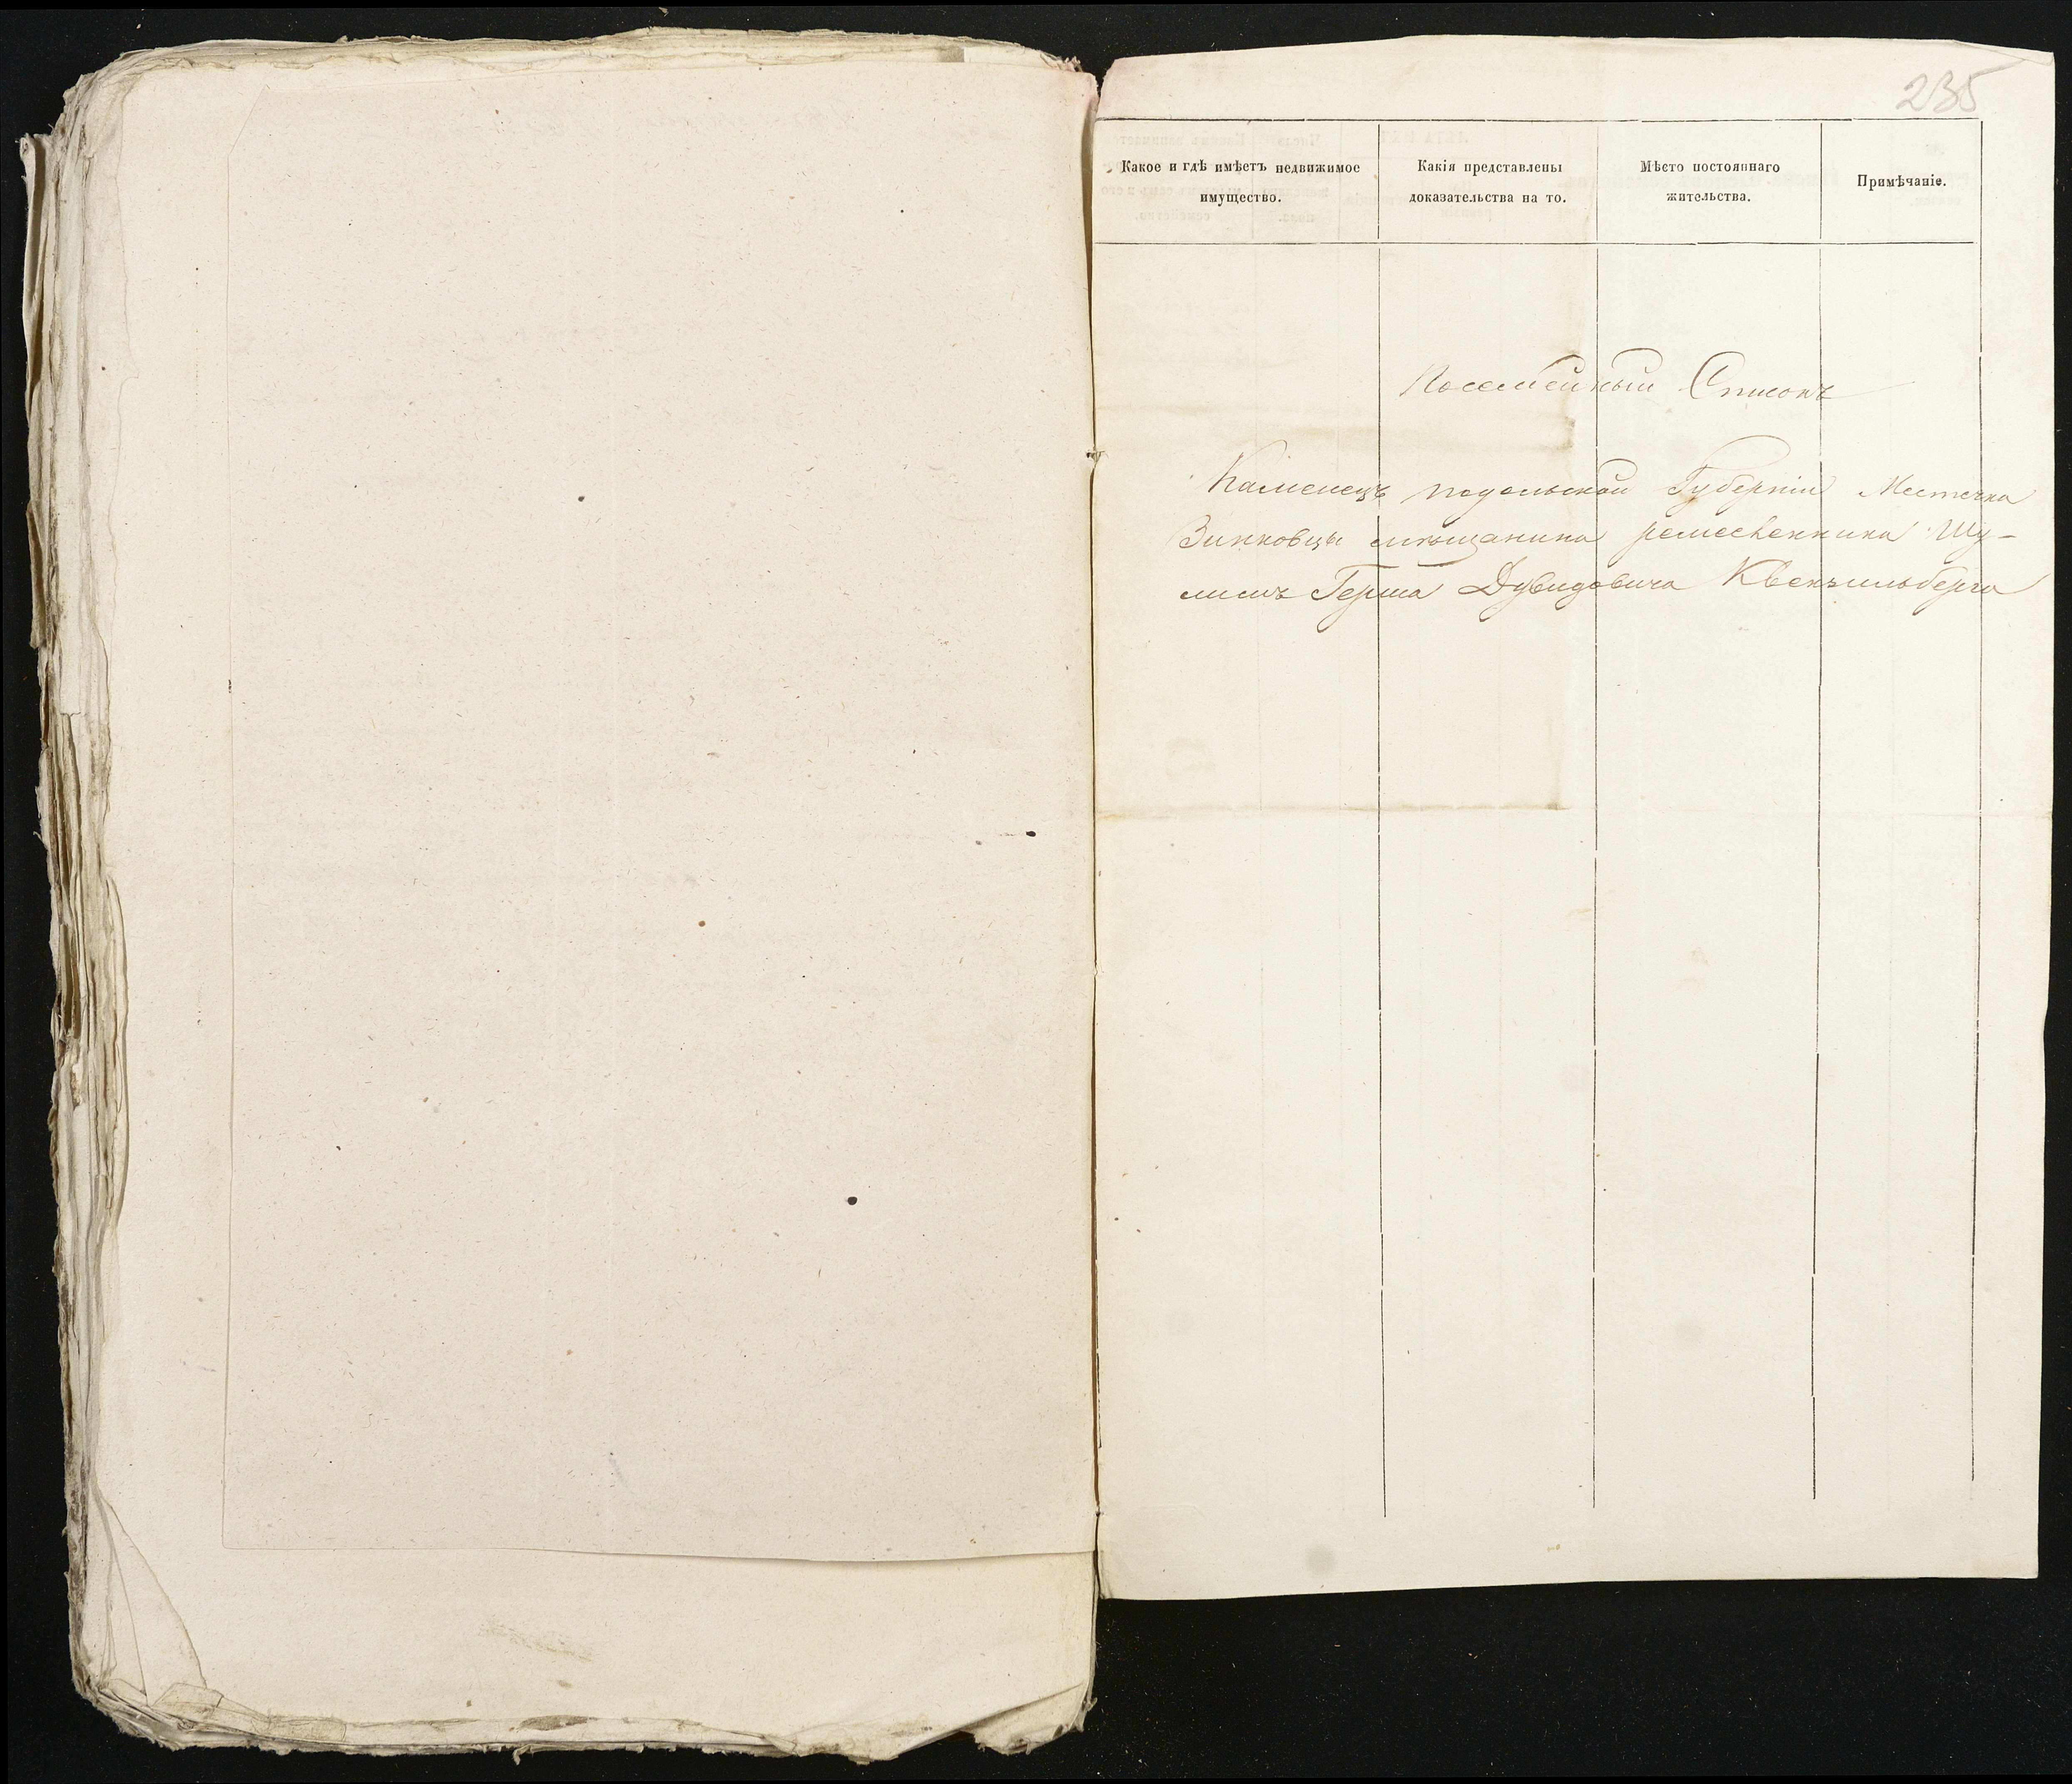 235
Какое и гдѣ имѣетъ недвижимое
имущество.
Какія представлены
доказательства на то.
Мѣсто постояннаго
жительства.
Примѣчаніе.
Посемейный Списокъ
Каменецъ подольской Губерніи Местечка
Зинковцы мѣщанина ремесленника Шу-
лимъ Герша Дувидовича Квекзильберга